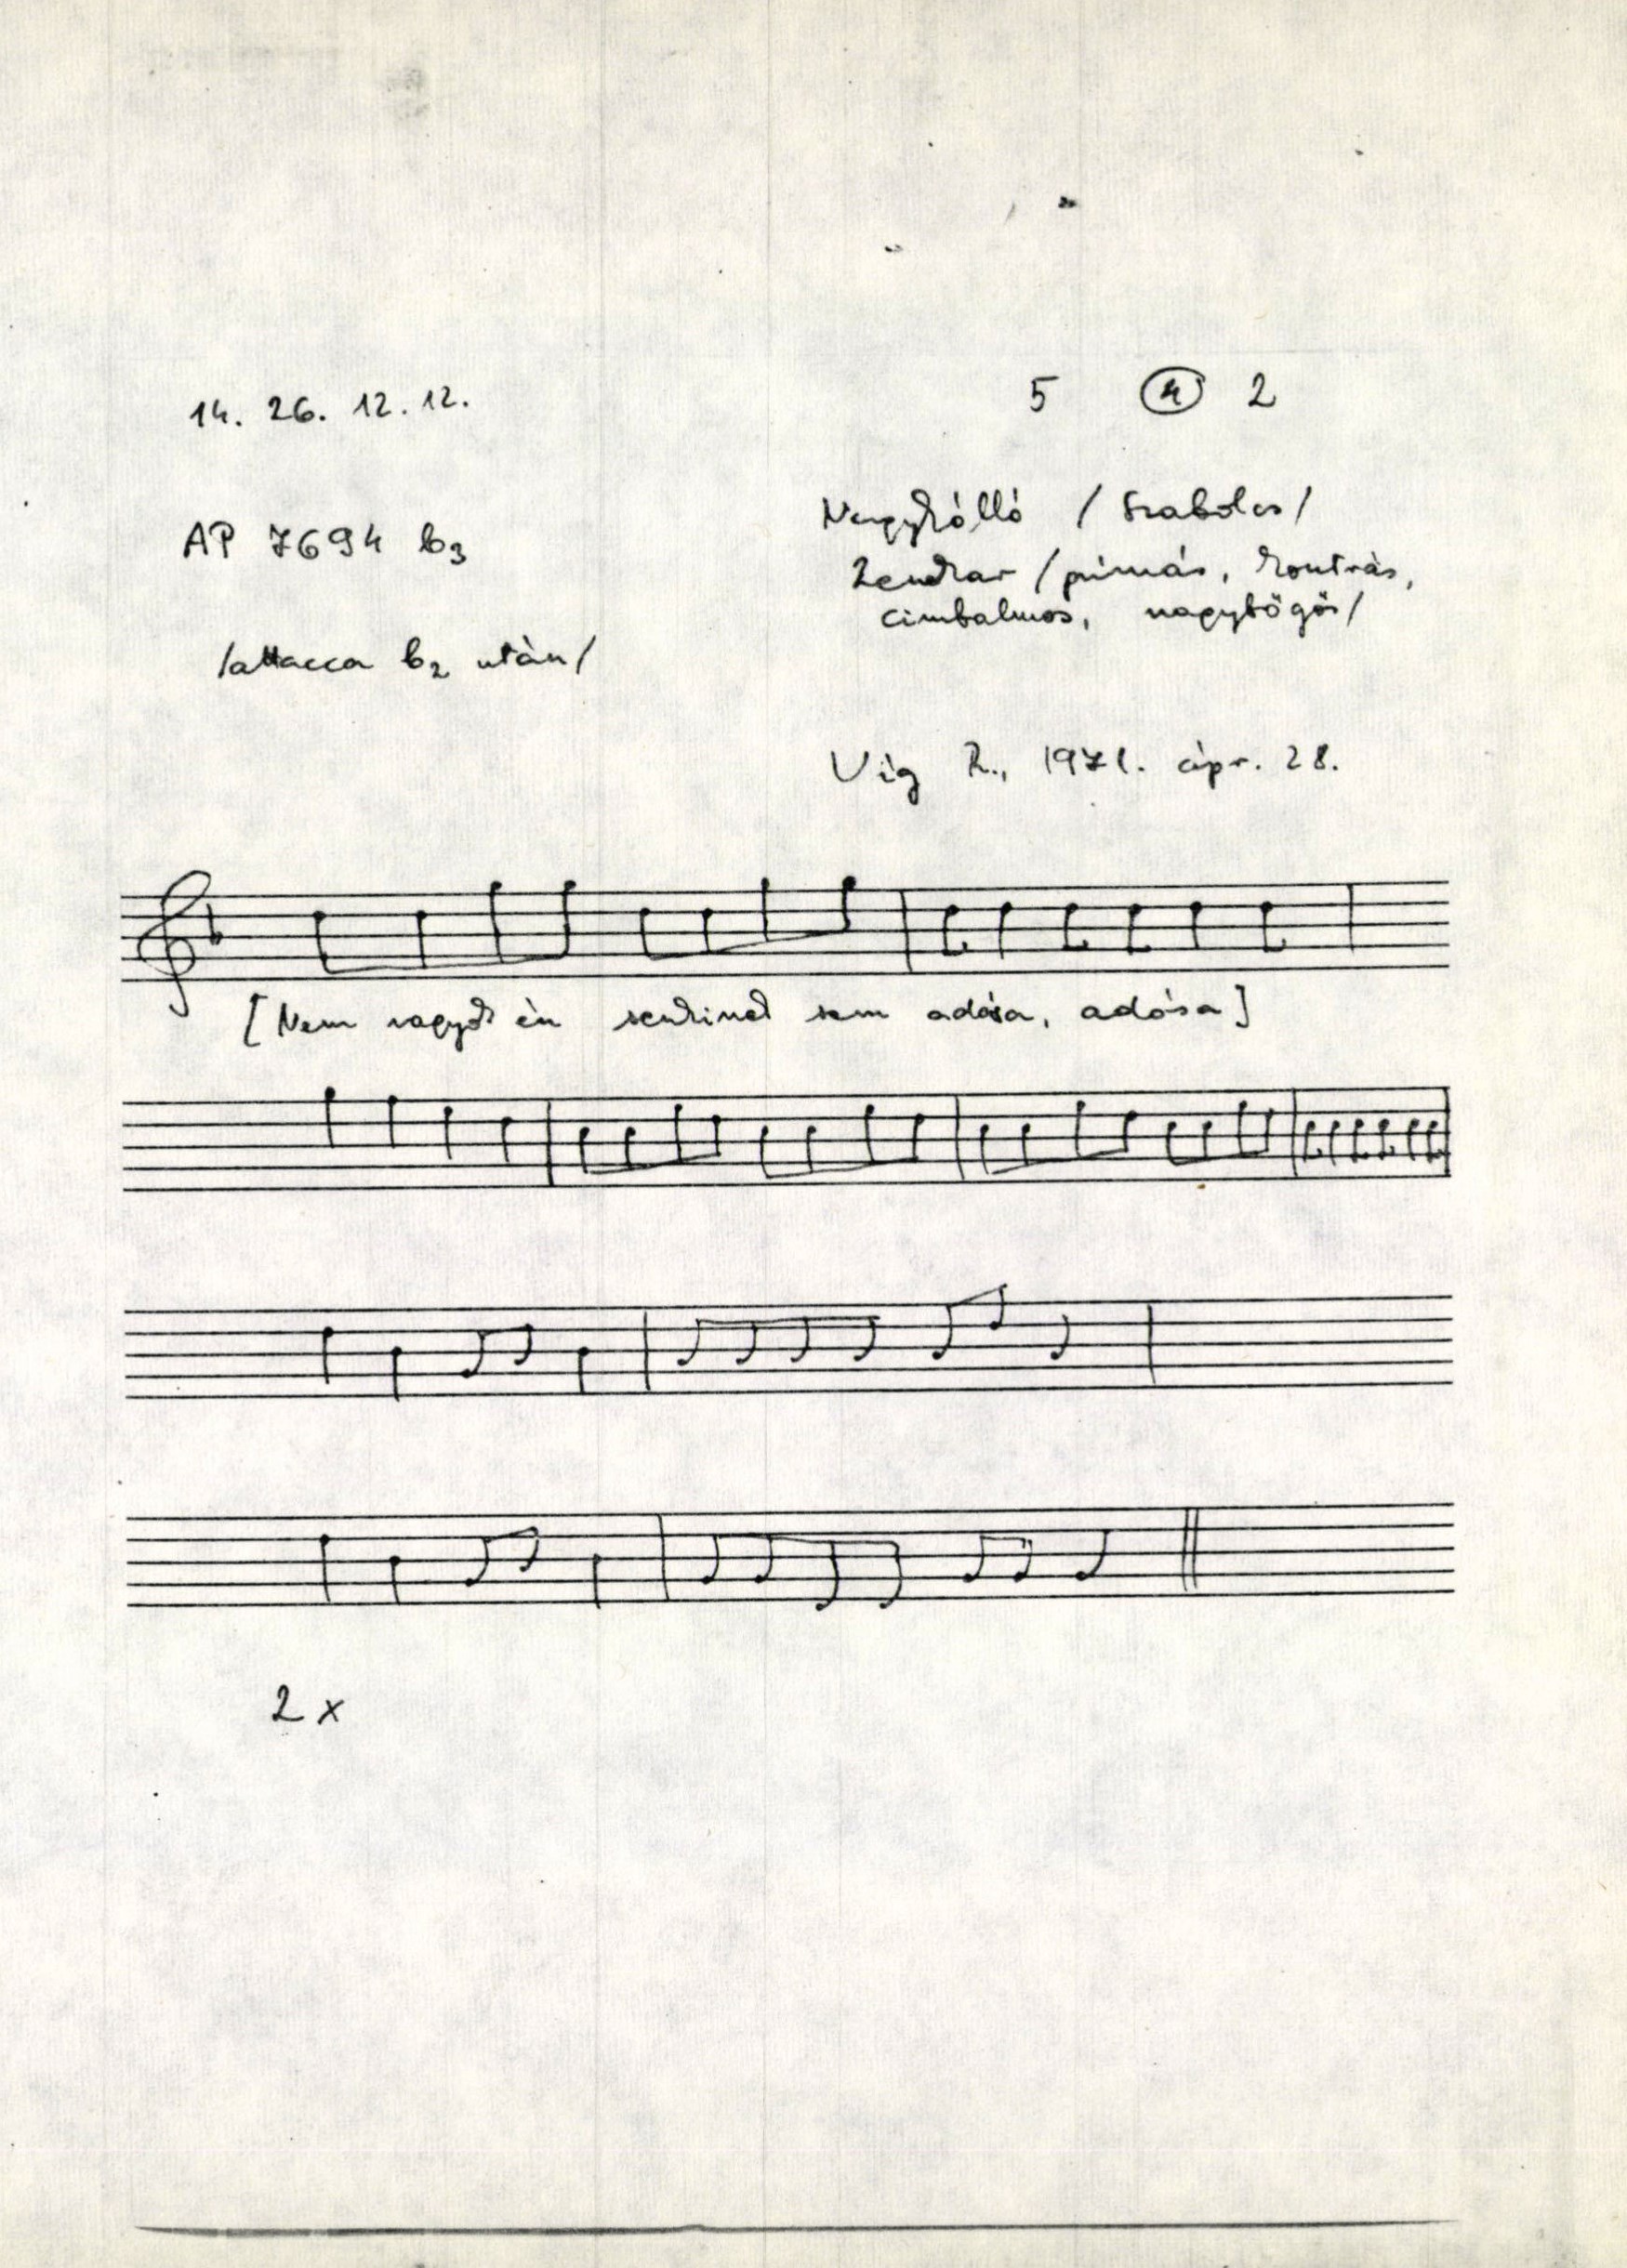 14. 26. 12. 12.
5 4 2
AP 7694 b3
/attacca b2 után/
Nagykálló /Szabolcs/
Zenekar /prímás, kontrás,
cimbalmos, nagybőgős/
Víg R., 1971. ápr. 28.
[Nem vagyok én senkinek sem adósa, adósa]
2 x